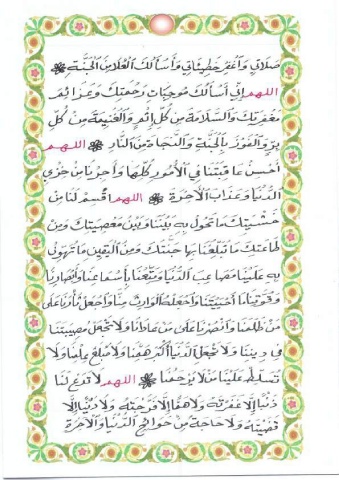 صَلَاتِي وَاغْفِرْ خَطِيئَاتِي وَأَسْأَلُكَ الْعُلَا مِنَ الْجَنَّةِ
اللهم إِنِّي أَسْأَلُكَ مُوجِبَاتِ رَحْمَتِكَ وَعَزَائِمَ
مَغْفِرَتِكَ وَالسَّلَامَةَ مِنْ كُلِّ إِثْمٍ وَالْغَنِيمَةَ مِنْ كُلِّ
بِرٍّ وَالْفَوْزَ بِالْجَنَّةِ وَالنَّجَاةَ مِنَ النَّارِ اللهم
أَحْسِنْ عَاقِبَتَنَا فِي الْأُمُورِ كُلِّهَا وَأَجِرْنَا مِنْ خِزْيِ
الدُّنْيَا وَعَذَابِ الْآخِرَةِ اللهم اقْسِمْ لَنَا مِنْ
خَشْيَتِكَ مَا تَحُولُ بِهِ بَيْنَنَا وَبَيْنَ مَعْصِيَتِكَ وَمِنْ
طَاعَتِكَ مَا تُبَلِّغُنَا بِهَا جَنَّتَكَ وَمِنَ الْيَقِينِ مَا تُهَوِّنُ
بِهِ عَلَيْنَا مَصَائِبَ الدُّنْيَا وَمَتِّعْنَا بِأَسْمَاعِنَا وَأَبْصَارِنَا
وَقُوَّتِنَا مَا أَحْيَيْتَنَا وَاجْعَلْهُ الْوَارِثَ مِنَّا وَاجْعَلْ ثَأْرَنَا عَلَى
مَنْ ظَلَمَنَا وَانْصُرْنَا عَلَى مَنْ عَادَانَا وَلَا تَجْعَلْ مُصِيبَتَنَا
فِي دِينِنَا وَلَا تَجْعَلِ الدُّنْيَا أَكْبَرَ هَمِّنَا وَلَا مَبْلَغَ عِلْمِنَا وَلَا
تُسَلِّطْ عَلَيْنَا مَنْ لَا يَرْحَمُنَا اللهم لَا تَدَعْ لَنَا
ذَنْبًا إِلَّا غَفَرْتَهُ وَلَا هَمًّا إِلَّا فَرَّجْتَهُ وَلَا دَيْنًا إِلَّا
قَضَيْتَهُ وَلَا حَاجَةً مِنْ حَوَائِجِ الدُّنْيَا وَالْآخِرَةِ